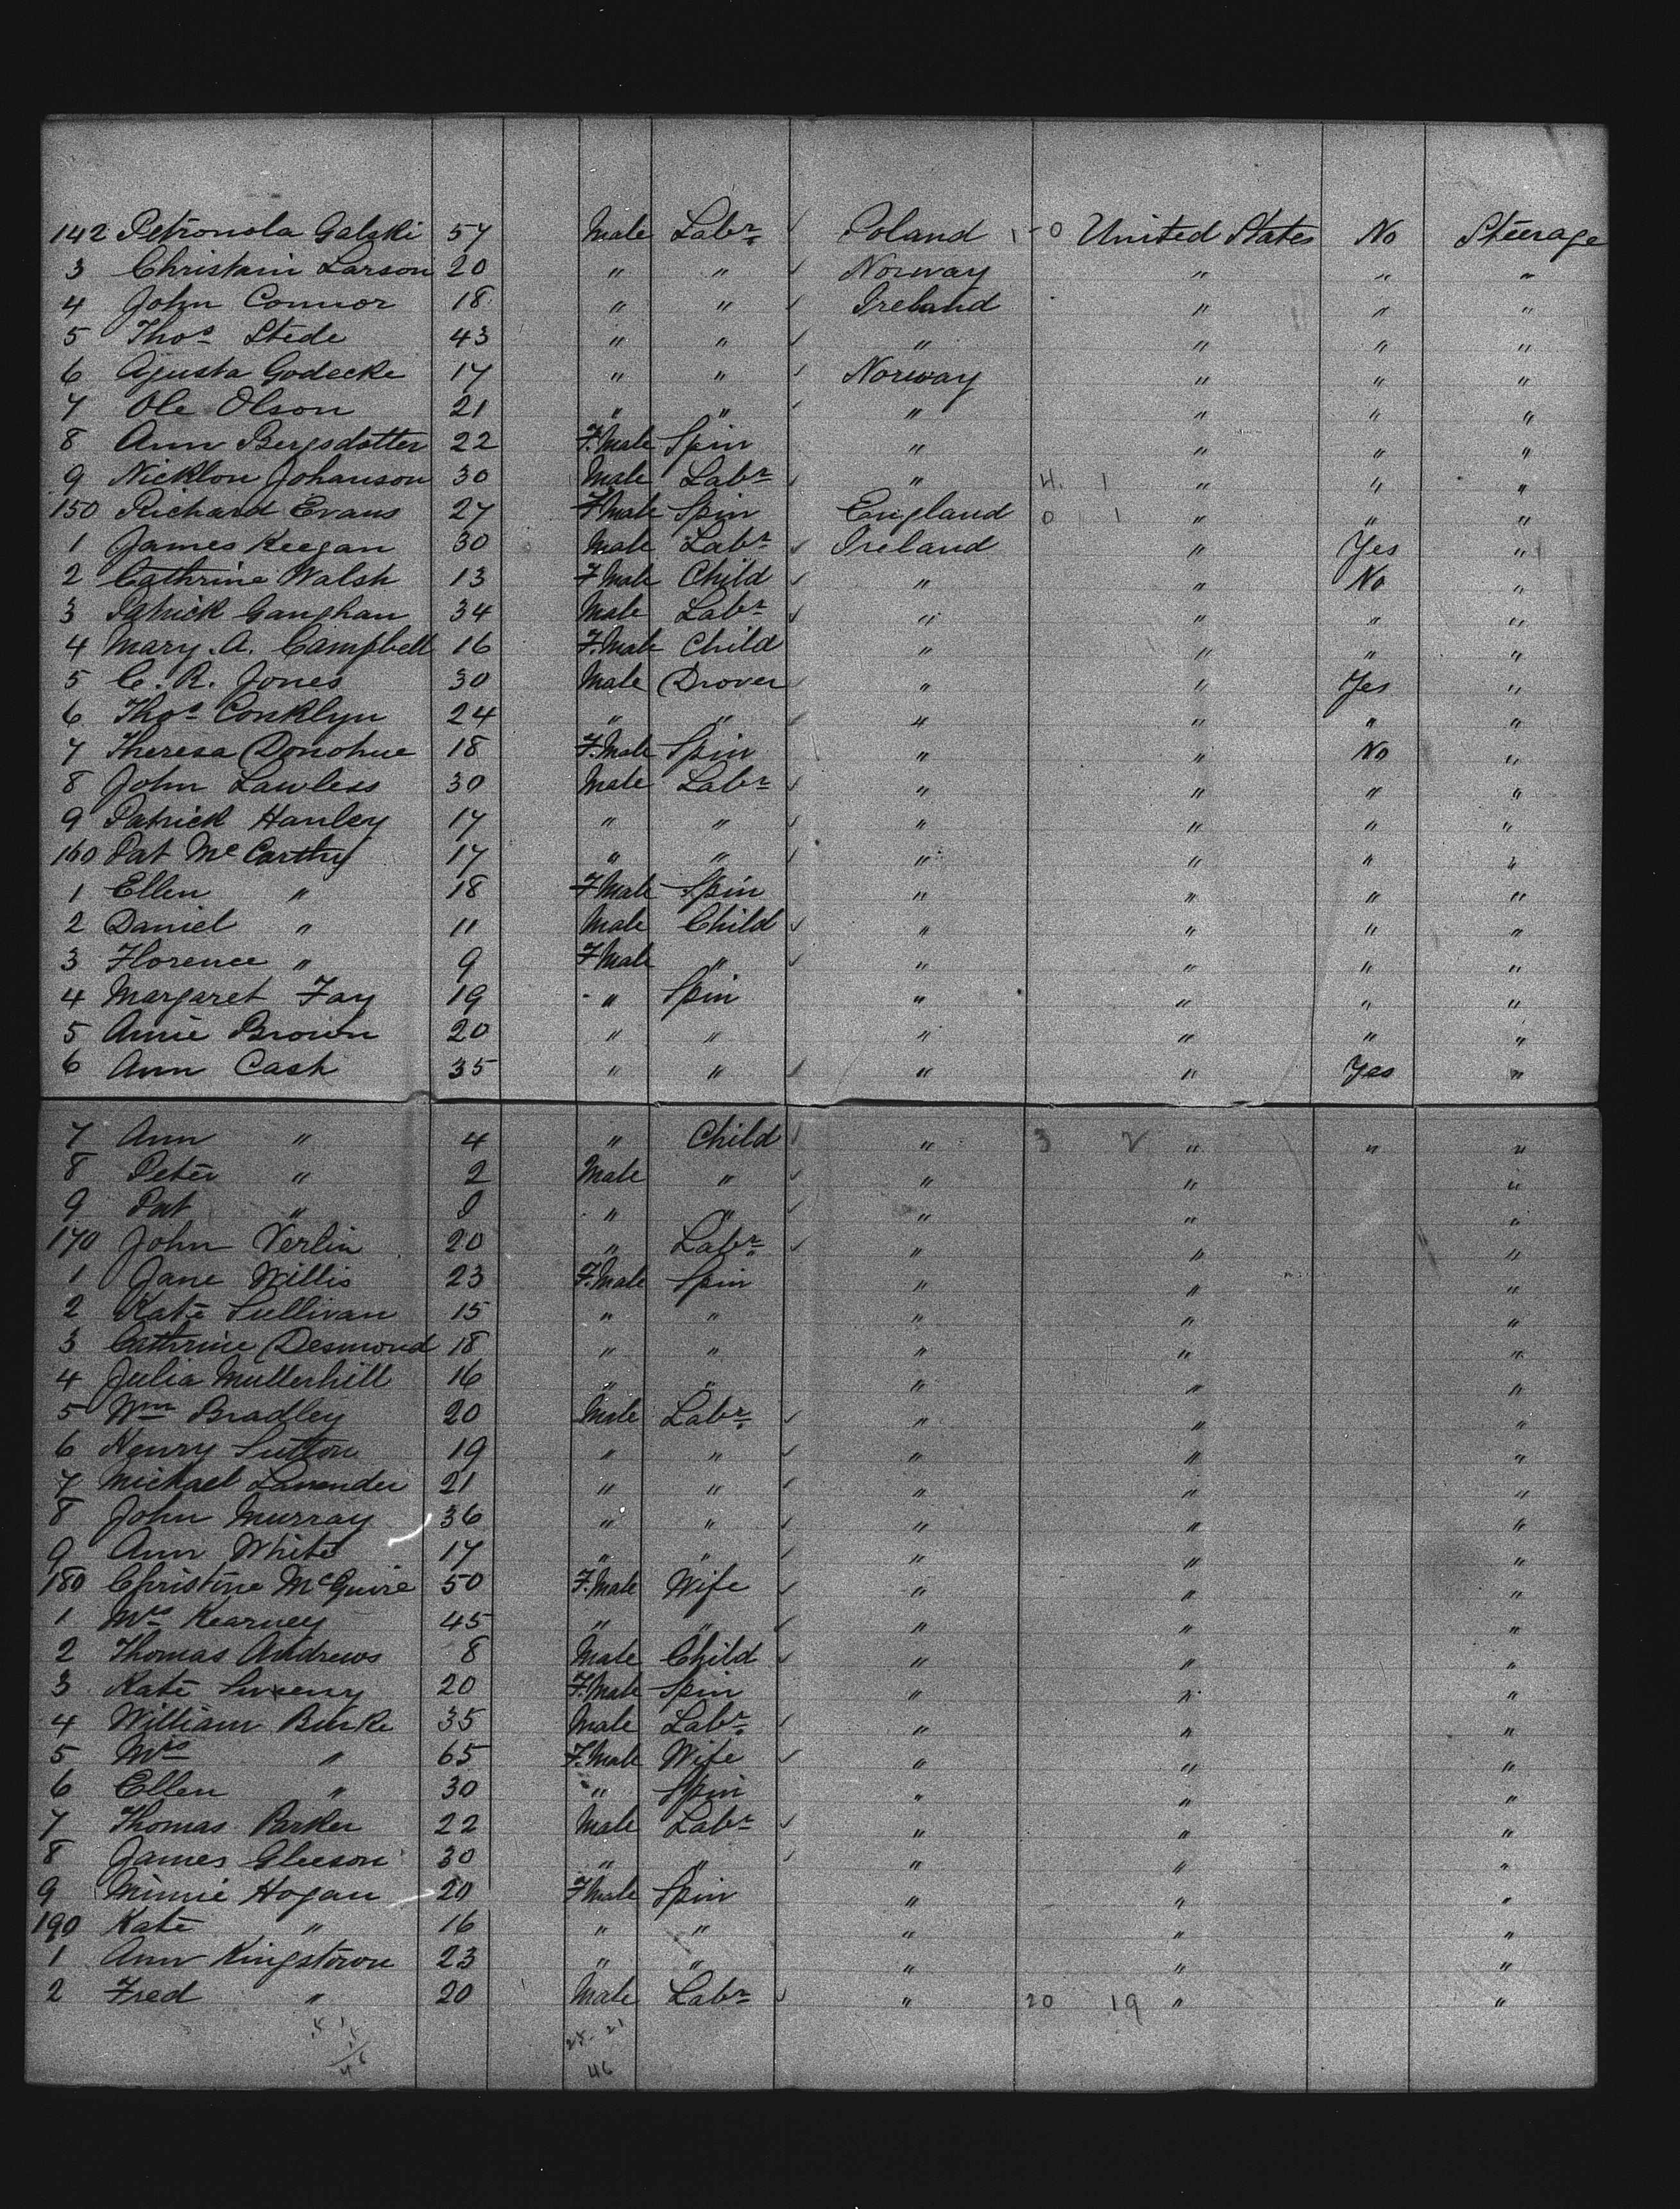 142 Petronola Galski 57 Male Labr Poland 1 - 0 United States No Steerage
3 Christain Larson 20 " " Norway " " "
4 John Connor 18 " " Ireland " " "
5 Thos Stede 43 " " " " " "
6 Agusta Godecke 17 " " Norway " " "
7 Ole Olson 21 " " " " " "
8 Ann Bergsdotter 22 F.Male Spin " " " "
9 Nicklou Johanson 30 Male Labr " 4. 1 " " "
150 Richard Evans 27 F Male Spin England 0 1 " " "
1 James Keegan 30 Male Labr Ireland " Yes "
2 Cathrine Walsh 13 F Male Child " " No "
3 Patrick Gaughan 34 Male Labr " " " "
4 Mary. A. Campbell 16 F.Male Child " " " "
5 C. R. Jones 30 Male Drover " " Yes "
6 Thos Conklyn 24 " " " " " "
7 Theresa Donohue 18 F.Male Spin " " No "
8 John Lawless 30 Male Labr " " " "
9 Patrick Hanley 17 " " " " " "
160 Pat McCarthy 17 " " " " " "
1 Ellen " 18 F Male Spin " " " "
2 Daniel " 11 Male Child " " " "
3 Florence " 9 F Male " " " " "
4 Margaret Fay 19 " Spin " " " "
5 Annie Brown 20 " " " " " "
6 Ann Cash 35 " " " " Yes "
7 Ann " 4 " Child " 3 2 " " "
8 Peter " 2 Male " " " "
9 Pat " " " " " "
170 John Verlin 20 " Labr " " "
1 Jane Willis 23 F.Male Spin " " "
2 Kate Sullivan 15 " " " " "
3 Cathrine Desmond 18 " " " " "
4 Julia Mullerhill 16 " " " " "
5 Wm Bradley 20 Male Labr " " "
6 Henry Sutton 19 " " " " "
7 Michael Lavender 21 " " " " "
8 John Murray 36 " " " " "
9 Ann White 17 " " " " "
180 Christine McGuire 50 F.Male Wife " " "
1 Mrs Kearney 45 " " " " "
2 Thomas Andrews 8 Male Child " " "
3 Kate Sweeny 20 F.Male Spin " " "
4 William Burke 35 Male Labr " " "
5 Mrs " 65 F.Male Wife " " "
6 Ellen " 30 " Spin " " "
7 Thomas Parker 22 Male Labr " " "
8 James Gleeson 30 " " " " "
9 Minnie Hogan 20 F Male Spin " " "
190 Kate " 16 " " " " "
1 Ann Kingstown 23 " " " " "
2 Fred " 20 Male Labr " 20 19 " "
25. 21
46